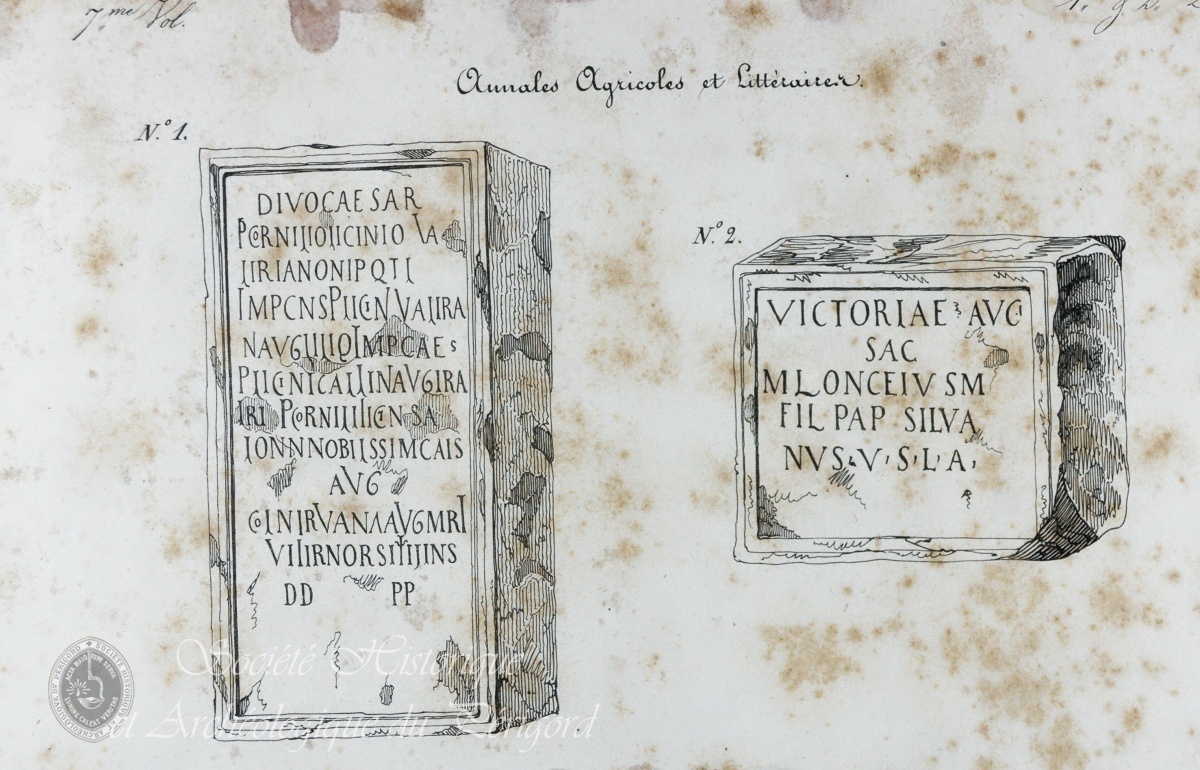 7.me Vol.
Annales Agricoles et Littéraires.
N.o 1.
DIVOCAESAR
PCORNIIIOIICINIO VA
IIRIANONIPQTI
IMPCNSPIICNVAIIRA
NAVGIIIIQIMPCAES
PIICNICAIIINAVGIRA
IRI PCORNIIIIICNSA
IONNNOBIISSIMCAIS
AVG
COINIRVANAAVGMRI
DD PP
N.o 2.
VICTORIAE AVG
SAC
MLONCEIVSM
FIL PAP SILVA
NVS·V·S·L·A·
Société Historique
et Archéologique du Périgord